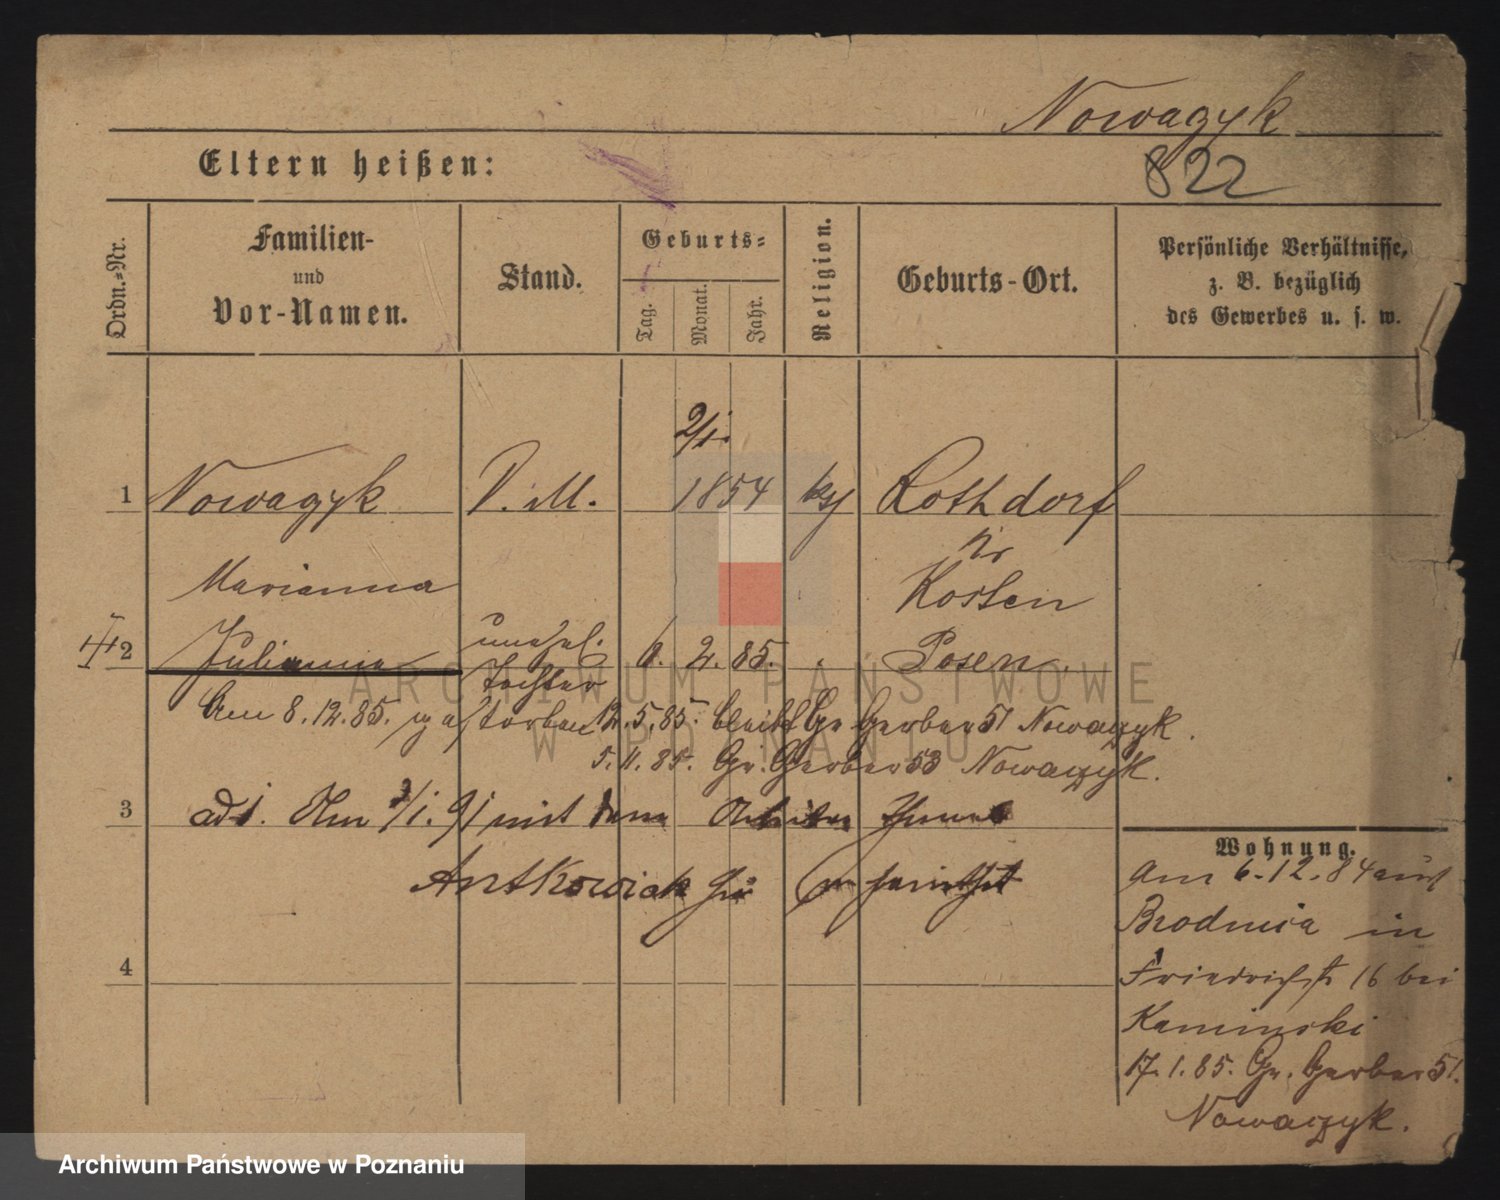 Nowaczyk
822
Eltern heißen:
Ordn.-Nr.
Familien-
und
Vor-Namen.
Stand.
Geburts-
Tag.
Monat.
Jahr.
Religion.
Geburts-Ort.
Persönliche Verhältnisse,
z. B. bezüglich
des Gewerbes u. s. w.
2/1.
1 Nowaczyk D. M. 1854 kth Rothdorf
Kr
Marianna Kosten
2 Julianna unehel. 6. 2. 85. Posen
Tochter
Am 8.12.85. gestorben 12.5.85. bleibt Gr Gerber 51 Nowaczyk.
5.11.85. Gr. Gerber 53 Nowaczyk.
3 ad 1. Am /1. 91 mit dem Arbeiter
Antkowiak
Wohnung.
Am 6.12.84 aus
Brodnica in
Friedrichst 16 bei
Kaminski
17.1.85. Gr. Gerber 51.
Nowaczyk.
4
ARCHIWUM PAŃSTWOWE
W POZNANIU
Archiwum Państwowe w Poznaniu